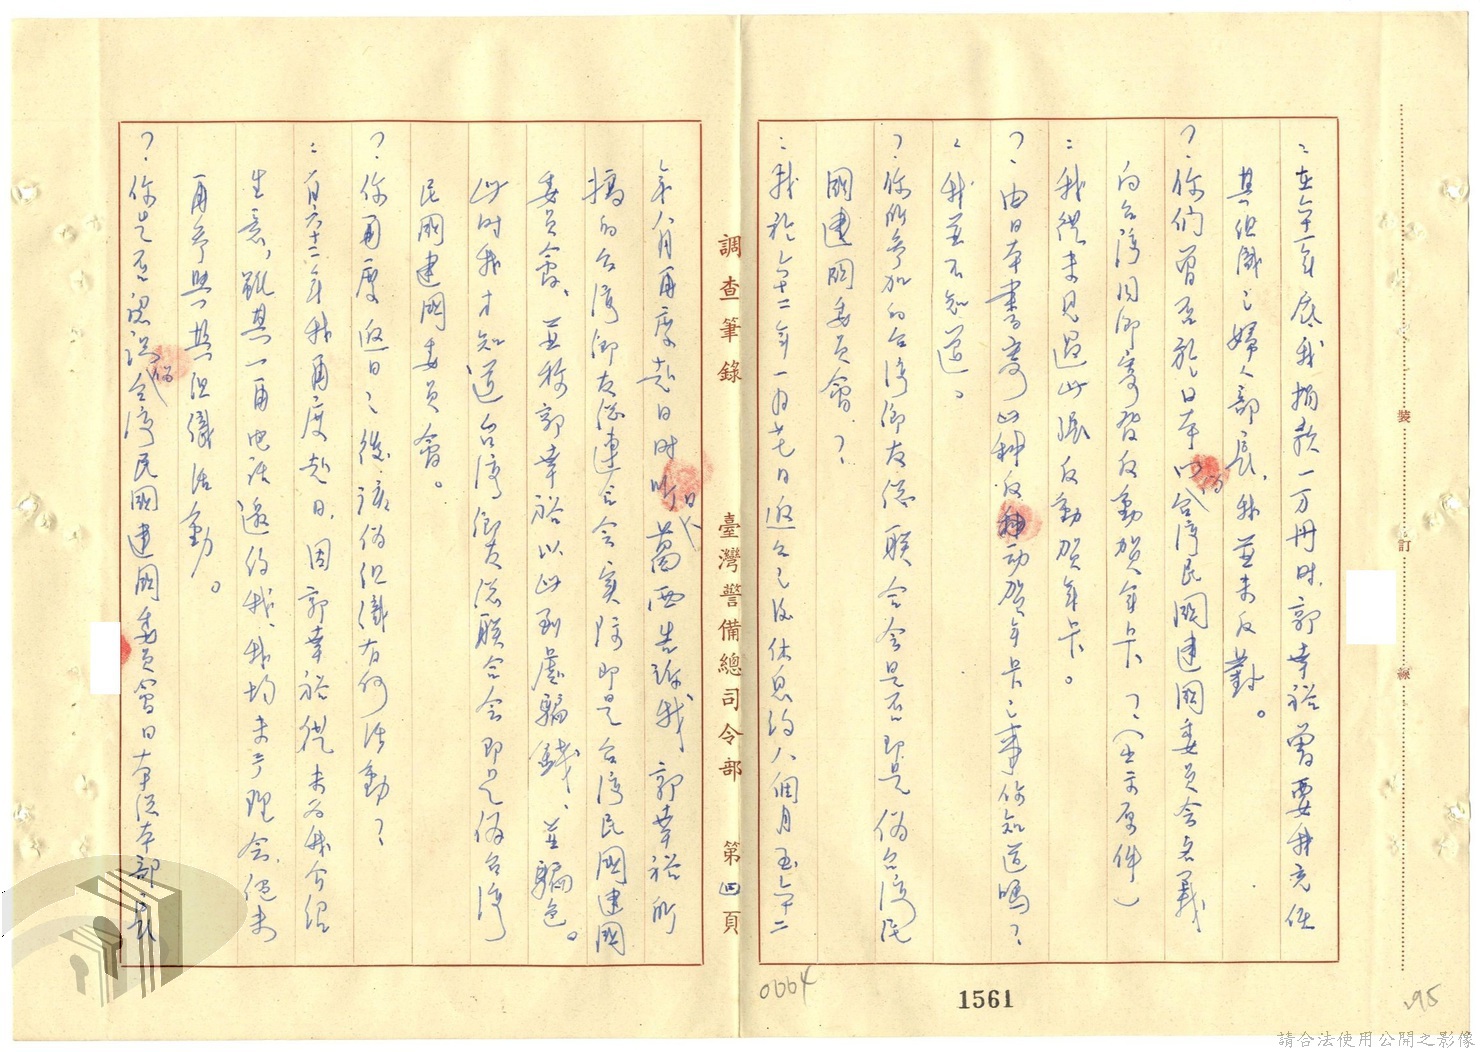 ：在六十一年底我捐款一万冊時，郭幸裕曾要我充任
其組織之婦人部長，我並未反對。
？：你們曾否於日本以偽台湾民國建國委員会名義
向台湾同御寄發反動賀年卡？（出示原件）
：我從未見過此張反動賀年卡。
？：由日本書寄此种反动賀年卡之事你知道嗎？
：我並不知道。
？：你所参加的台湾御友総联合会是否即是偽台湾民
國建國委員會？
：我於六十二年一月廿七日返台之后休息约八個月至六十二
年八月再度赴日時，听葛西告訴我，郭幸裕所
搞的台湾御友総連合会实际即是台湾民國建國
委員會，並称郭幸裕以此到處騙錢，並騙色。
此时我才知道台湾御友総联合会即是偽台湾
民國建國委員會。
？：你再度返日之後，該偽組織有何活動？
：有六十二年我再度赴日，因郭幸裕從未为我介绍
生意，雖其一再电话邀约我，我均未予理会，便未
再参與其組織活動。
？：你是否認識偽台湾民國建國委員會日本总本部長
調查筆錄
臺灣警備總司令部
第四頁
裝
訂
線
0064
1561
95
請合法使用公開之影像